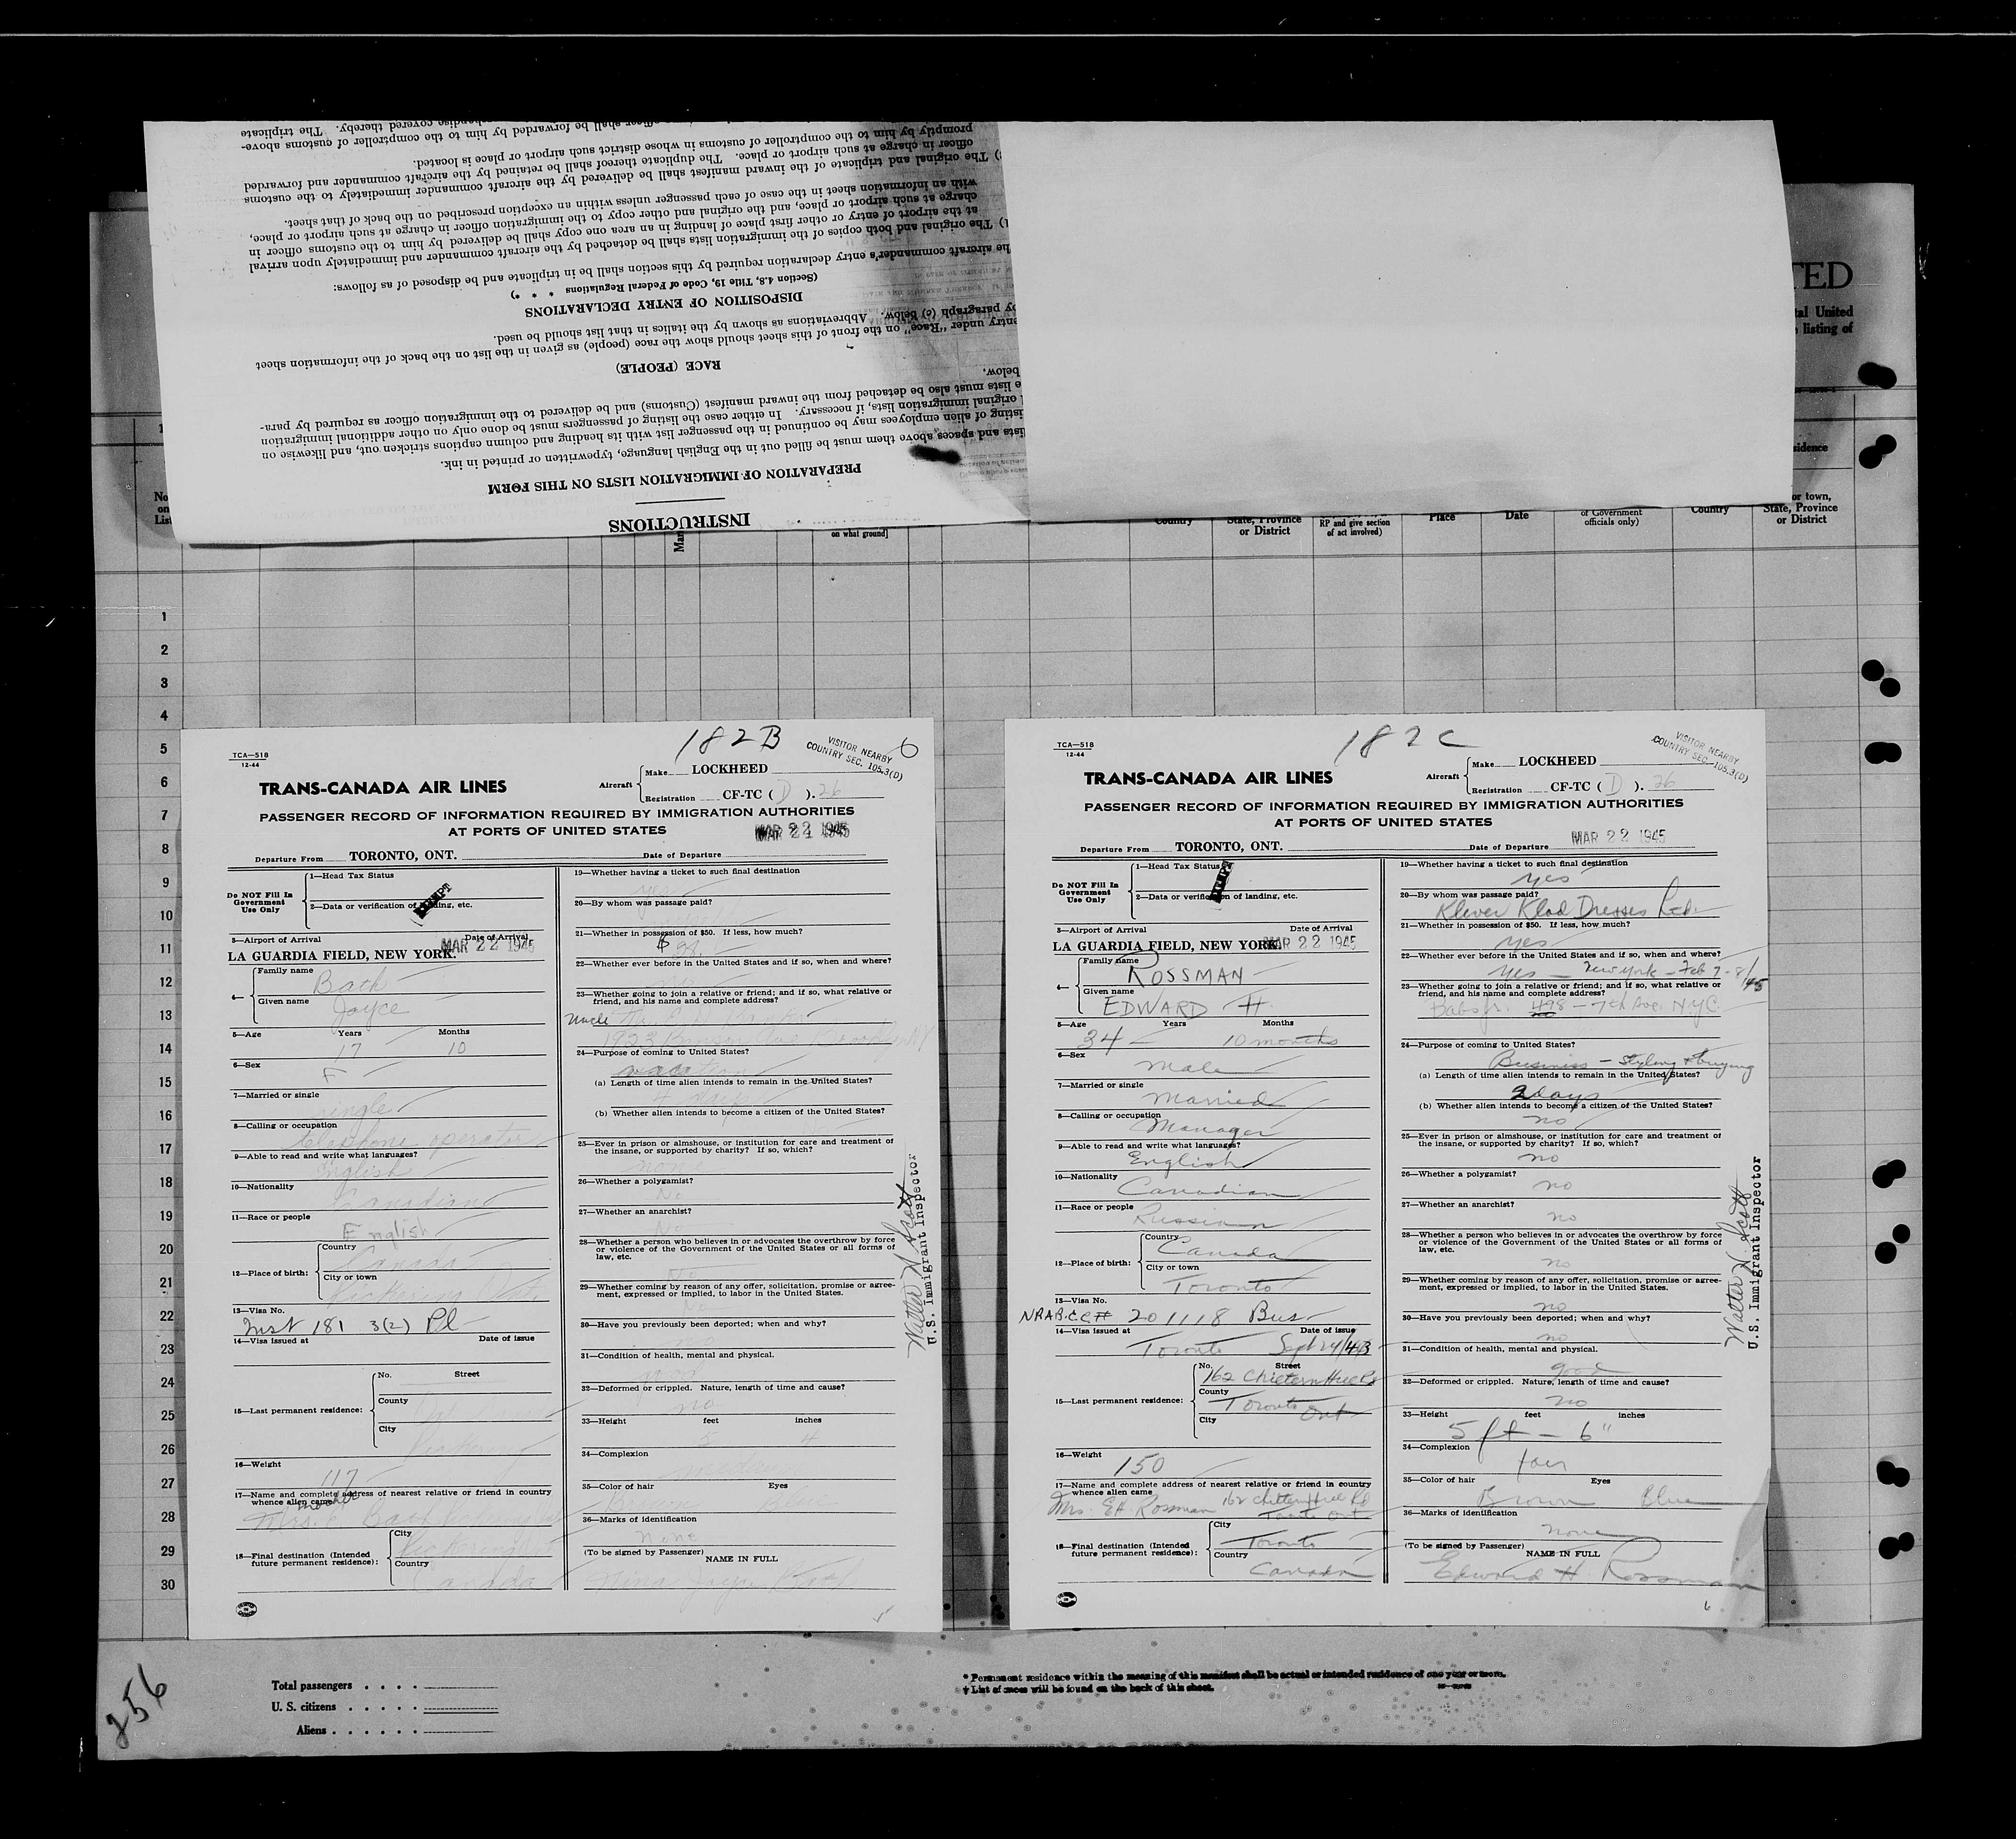 INSTRUCTIONS
PREPARATION OF IMMIGRATION LISTS ON THIS FORM
ists and spaces above them must be filled out in the English language, typewritten or printed in ink.
isting of alien employees may be continued in the passenger list with its heading and column captions stricken out, and likewise on
original immigration lists, if necessary. In either case the listing of passengers must be done only on other additional immigration
e lists must also be detached from the inward manifest (Customs) and be delivered to the immigration officer as required by para-
below.
RACE (PEOPLE)
entry under "Race" on the front of this sheet should show the race (people) as given in the list on the back of the information sheet
by paragraph (c) below. Abbreviations as shown by the italics in that list should be used.
DISPOSITION OF ENTRY DECLARATIONS
(Section 4.8, Title 19, Code of Federal Regulations * * *)
he aircraft commander's entry declaration required by this section shall be in triplicate and be disposed of as follows:
1) The original and both copies of the immigration lists shall be detached by the aircraft commander and immediately upon arrival
at the airport of entry or other first place of landing in an area one copy shall be delivered by him to the customs officer in
charge at such airport or place, and the original and other copy to the immigration officer in charge at such airport or place,
with an information sheet in the case of each passenger unless within an exception prescribed on the back of that sheet.
) The original and triplicate of the inward manifest shall be delivered by the aircraft commander immediately to the customs
officer in charge at such airport or place. The duplicate thereof shall be retained by the aircraft commander and forwarded
promptly by him to the comptroller of customs in whose district such airport or place is located.
officer shall be forwarded by him to the comptroller of customs above-
covered thereby. The triplicate
TED
tal United
listing of
sidence
No
on
List
Mar
on what ground]
Country
State, Province
or District
RP and give section
of act involved)
Place
Date
of Government
officials only)
Country
or town,
State, Province
or District
1
2
3
4
5
6
7
8
9
10
11
12
13
14
15
16
17
18
19
20
21
22
23
24
25
26
27
28
29
30
182B
6
VISITOR NEARBY
COUNTRY SEC. 105.3(D)
TCA—518
12-44
TRANS-CANADA AIR LINES
Aircraft
Make LOCKHEED
Registration CF-TC ( D ). 26
PASSENGER RECORD OF INFORMATION REQUIRED BY IMMIGRATION AUTHORITIES
AT PORTS OF UNITED STATES
MAR 22 1945
Departure From TORONTO, ONT. Date of Departure
Do NOT Fill In
Government
Use Only
1—Head Tax Status
EXEMPT
2—Data or verification of landing, etc.
3—Airport of Arrival Date of Arrival
LA GUARDIA FIELD, NEW YORK. MAR 22 1945
4—
Family name
Bach
Given name
Joyce
5—Age Years Months
17 10
6—Sex
F
7—Married or single
single
8—Calling or occupation
telephone operator
9—Able to read and write what languages?
English
10—Nationality
Canadian
11—Race or people
English
12—Place of birth:
Country
Canada
City or town
Pickering Ont
13—Visa No.
Inst 181 3(2) Pl
14—Visa issued at Date of issue
15—Last permanent residence:
No. Street
County
City
16—Weight
117
17—Name and complete address of nearest relative or friend in country
whence alien came
mother
Mrs. Bach
18—Final destination (Intended
future permanent residence):
City
Pickering
Country
Canada
19—Whether having a ticket to such final destination
yes
20—By whom was passage paid?
21—Whether in possession of $50. If less, how much?
$
22—Whether ever before in the United States and if so, when and where?
23—Whether going to join a relative or friend; and if so, what relative or
friend, and his name and complete address?
Uncle
24—Purpose of coming to United States?
vacation
(a) Length of time alien intends to remain in the United States?
(b) Whether alien intends to become a citizen of the United States?
25—Ever in prison or almshouse, or institution for care and treatment of
the insane, or supported by charity? If so, which?
none
26—Whether a polygamist?
No
27—Whether an anarchist?
No
28—Whether a person who believes in or advocates the overthrow by force
or violence of the Government of the United States or all forms of
law, etc.
No
29—Whether coming by reason of any offer, solicitation, promise or agree-
ment, expressed or implied, to labor in the United States.
No
30—Have you previously been deported; when and why?
31—Condition of health, mental and physical.
good
32—Deformed or crippled. Nature, length of time and cause?
no
33—Height feet inches
5 4
34—Complexion
35—Color of hair Eyes
36—Marks of identification
none
(To be signed by Passenger)
NAME IN FULL
Walter N. Scott
U.S. Immigrant Inspector
5
182C
VISITOR NEARBY
COUNTRY SEC. 105.3(D)
TCA—518
12-44
TRANS-CANADA AIR LINES
Aircraft
Make LOCKHEED
Registration CF-TC ( D ). 26
PASSENGER RECORD OF INFORMATION REQUIRED BY IMMIGRATION AUTHORITIES
AT PORTS OF UNITED STATES
MAR 22 1945
Departure From TORONTO, ONT. Date of Departure
Do NOT Fill In
Government
Use Only
1—Head Tax Status
EXEMPT
2—Data or verification of landing, etc.
3—Airport of Arrival Date of Arrival
LA GUARDIA FIELD, NEW YORK. MAR 22 1945
4—
Family name
ROSSMAN
Given name
EDWARD H.
5—Age Years Months
34 — 10 months
6—Sex
male
7—Married or single
Married
8—Calling or occupation
Manager
9—Able to read and write what languages?
English
10—Nationality
Canadian
11—Race or people
Russian
12—Place of birth:
Country
Canada
City or town
Toronto
13—Visa No.
NRABCC# 201118 Bus
14—Visa issued at Date of issue
Toronto Sept 24/43
15—Last permanent residence:
No. Street
162 Chiltern Hill Rd
County
Toronto Ont
City
16—Weight
150
17—Name and complete address of nearest relative or friend in country
whence alien came
Mrs. EH Rossman 162 Chiltern Hill Rd
Toronto Ont
18—Final destination (Intended
future permanent residence):
City
Toronto
Country
Canada
19—Whether having a ticket to such final destination
yes
20—By whom was passage paid?
Klever Klad Dresses Ltd.
21—Whether in possession of $50. If less, how much?
yes
22—Whether ever before in the United States and if so, when and where?
yes — New York — Feb 7-8/45
23—Whether going to join a relative or friend; and if so, what relative or
friend, and his name and complete address?
Babs Jr. 498 — 7th Ave. N.Y.C.
24—Purpose of coming to United States?
Business — Styling & buying
(a) Length of time alien intends to remain in the United States?
2 days
(b) Whether alien intends to become a citizen of the United States?
no
25—Ever in prison or almshouse, or institution for care and treatment of
the insane, or supported by charity? If so, which?
no
26—Whether a polygamist?
no
27—Whether an anarchist?
no
28—Whether a person who believes in or advocates the overthrow by force
or violence of the Government of the United States or all forms of
law, etc.
no
29—Whether coming by reason of any offer, solicitation, promise or agree-
ment, expressed or implied, to labor in the United States.
no
30—Have you previously been deported; when and why?
no
31—Condition of health, mental and physical.
good
32—Deformed or crippled. Nature, length of time and cause?
no
33—Height feet inches
5 ft — 6"
34—Complexion
fair
35—Color of hair Eyes
Brown Blue
36—Marks of identification
none
(To be signed by Passenger)
NAME IN FULL
Edward H Rossman
Walter N. Scott
U.S. Immigrant Inspector
6
256
Total passengers . . . .
U. S. citizens . . . . .
Aliens . . . . . .
* Permanent residence within the meaning of this manifest shall be actual or intended residence of one year or more.
† List of races will be found on the back of this sheet.